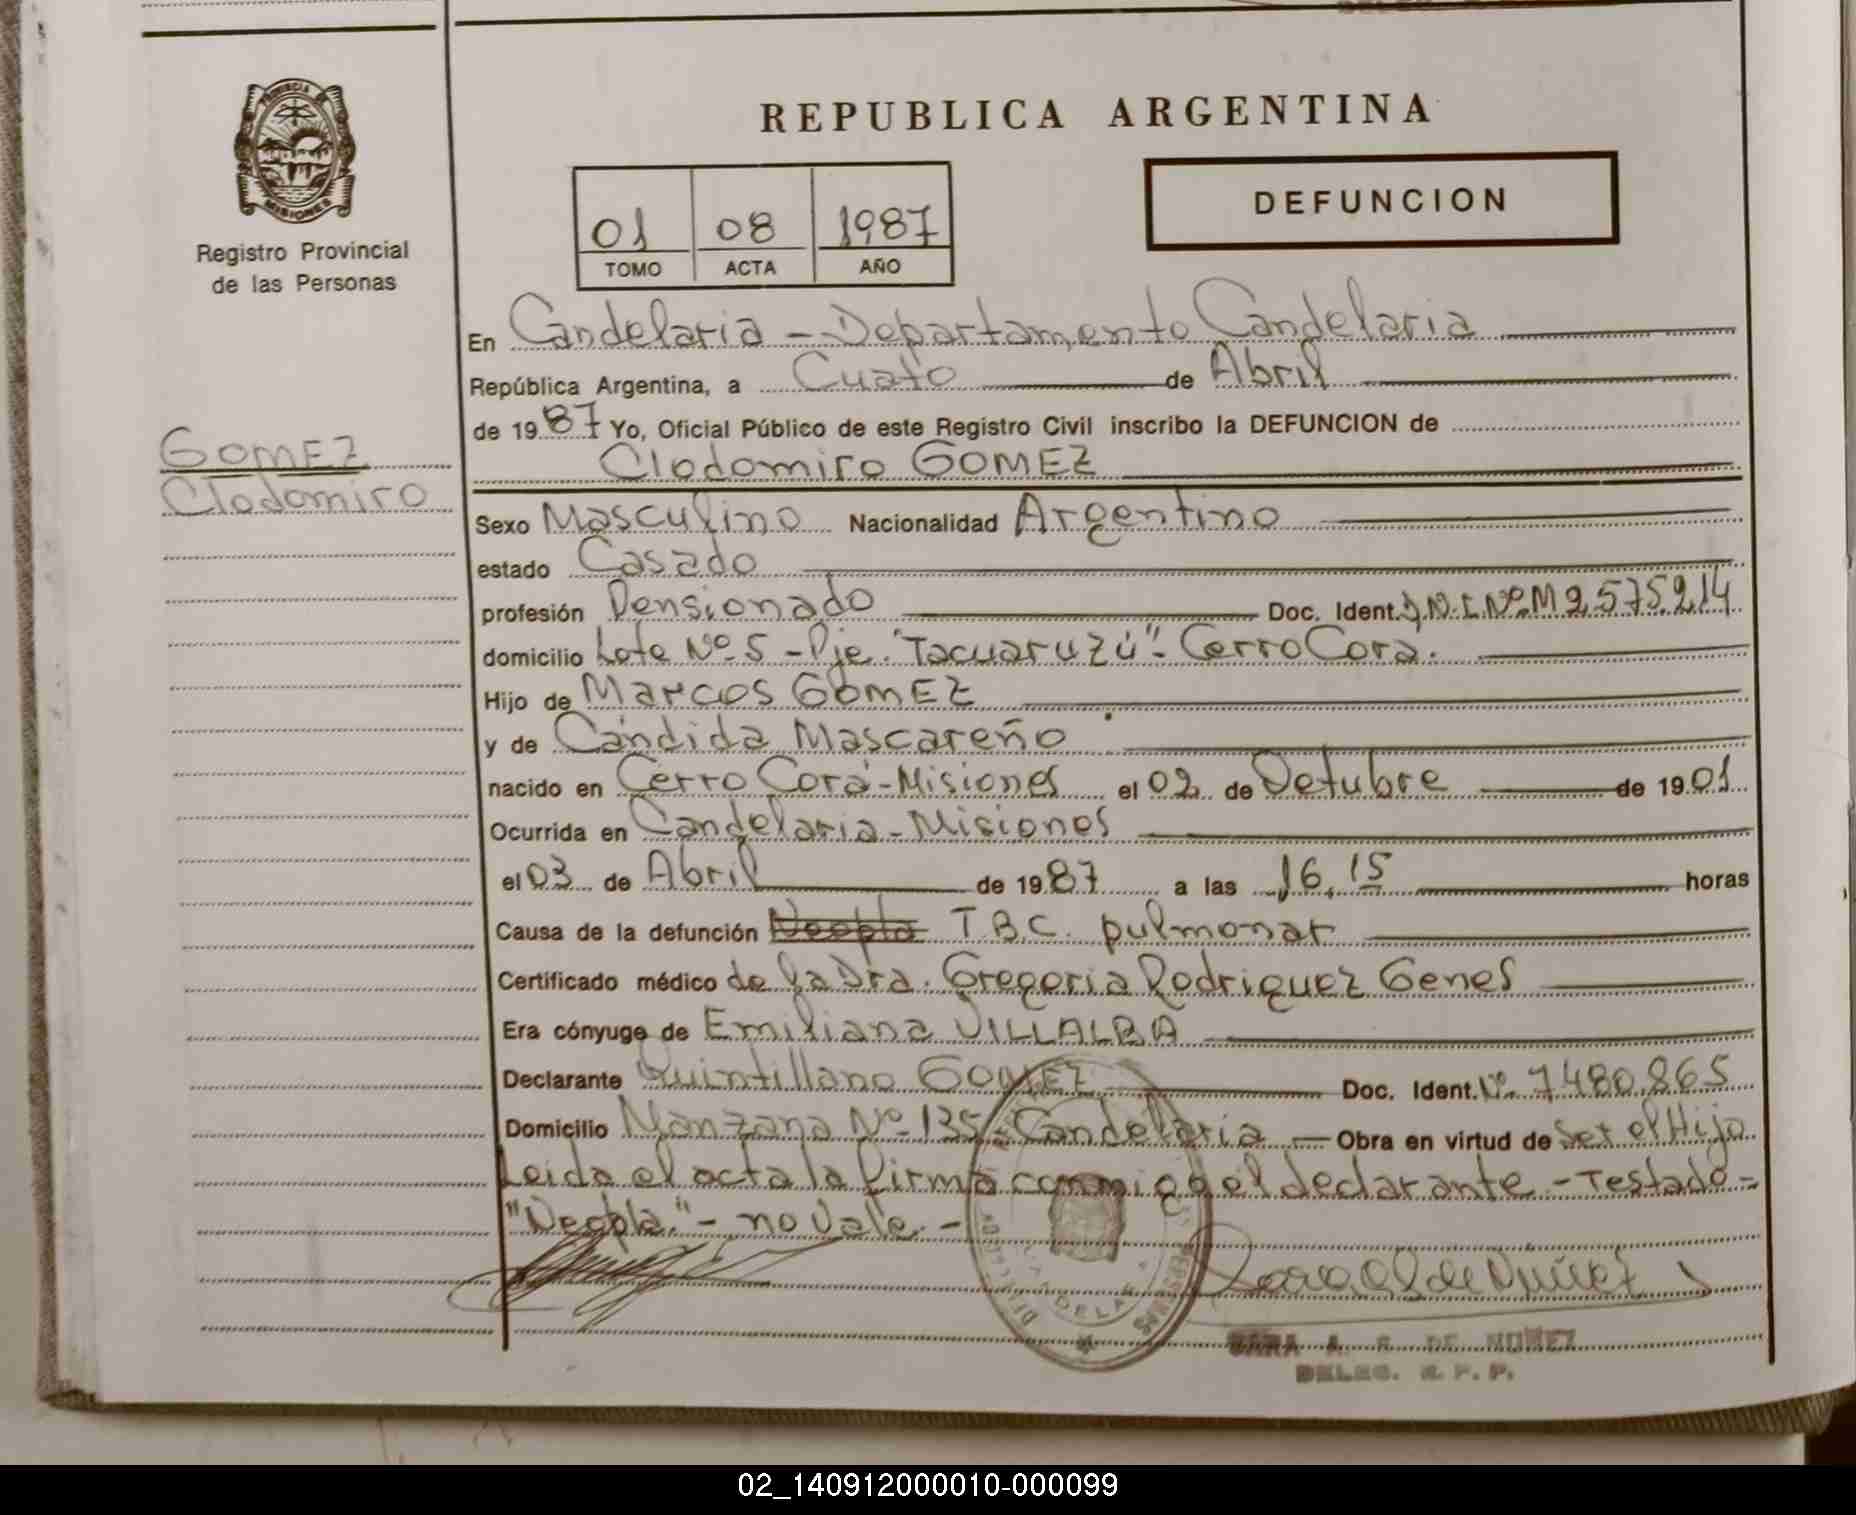 PROVINCIA DE
MISIONES
Registro Provincial
de las Personas
GOMEZ
Clodomiro
REPUBLICA ARGENTINA
01 08 1987
TOMO ACTA AÑO
DEFUNCION
En Candelaria - Departamento Candelaria
República Argentina, a Cuato de Abril
de 19 87 Yo, Oficial Público de este Registro Civil inscribo la DEFUNCION de
Clodomiro GOMEZ
Sexo Masculino Nacionalidad Argentino
estado Casado
profesión Pensionado Doc. Ident. D.N.I. Nº M 2.575.214
domicilio Lote Nº 5 - Pje. "Tacuaruzú" - Cerro Cora.
Hijo de Marcos GOMEZ
y de Cándida Mascareño
nacido en Cerro Corá - Misiones el 02 de Octubre de 19 01
Ocurrida en Candelaria - Misiones
el 03 de Abril de 19 87 a las 16,15 horas
Causa de la defunción Neopla T.B.C. pulmonar
Certificado médico de la Dra. Gregoria Rodriguez Genes
Era cónyuge de Emiliana VILLALBA
Declarante Quintillano GOMEZ Doc. Ident. Nº 7480.865
Domicilio Manzana Nº 135 - Candelaria - Obra en virtud de Ser el Hijo
Leida el acta la firma conmigo el declarante - Testado -
"Neopla" - no vale. -
SARA A. R. DE NUÑEZ
DELEG. R. P. P.
02_140912000010-000099